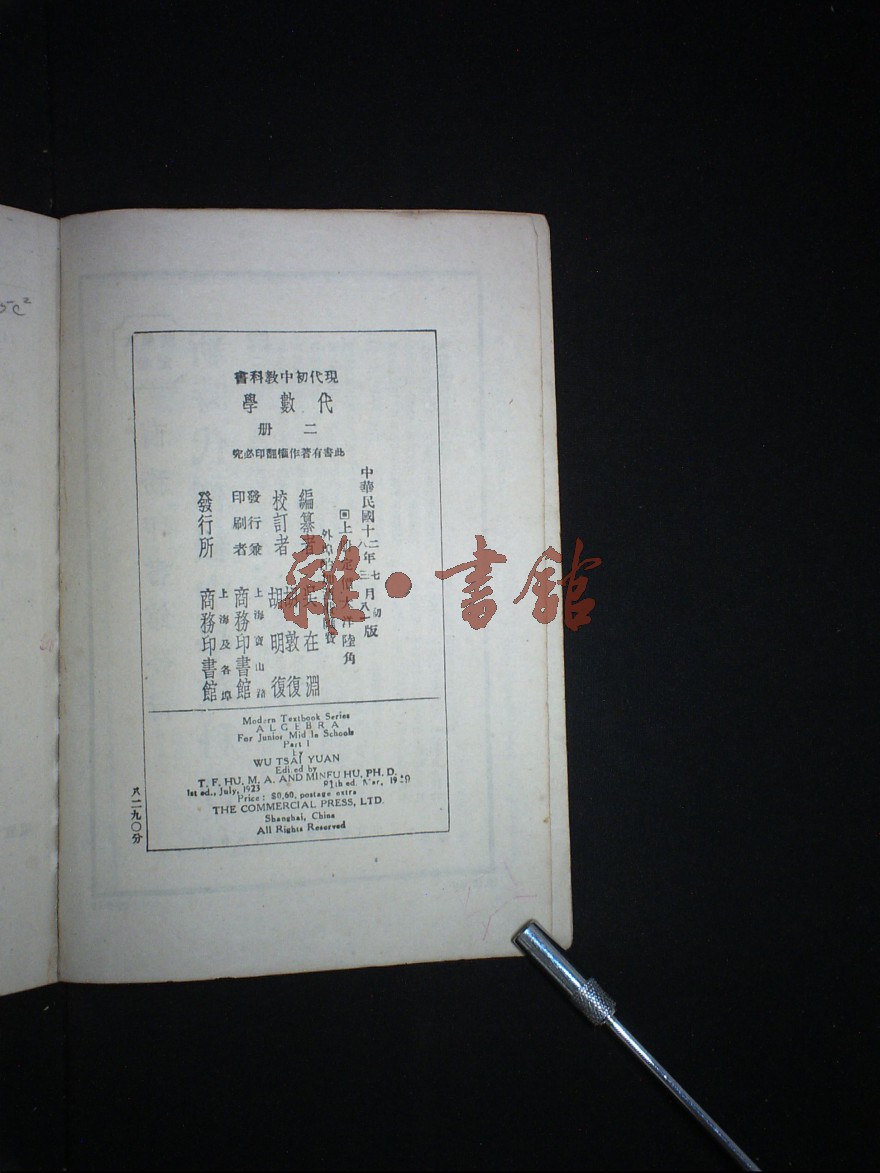 現代初中教科書
代數學
二册
此書有著作權翻印必究
中華民國十二年七月初版
編纂者 吳在淵
校訂者 胡敦復
胡明復
發行兼印刷者 上海寶山路 商務印書館
發行所 上海及各埠 商務印書館
Modern Textbook Series
ALGEBRA
For Junior Mid le Schools
Part I
by
WU TSAI YUAN
Edi.ed by
T. F. HU, M. A. AND MINFU HU, PH. D.
1st ed., July, 1923
Price: $0.60, postage extra
THE COMMERCIAL PRESS, LTD.
Shanghai, China
All Rights Reserved
八二九〇分
雜·書館